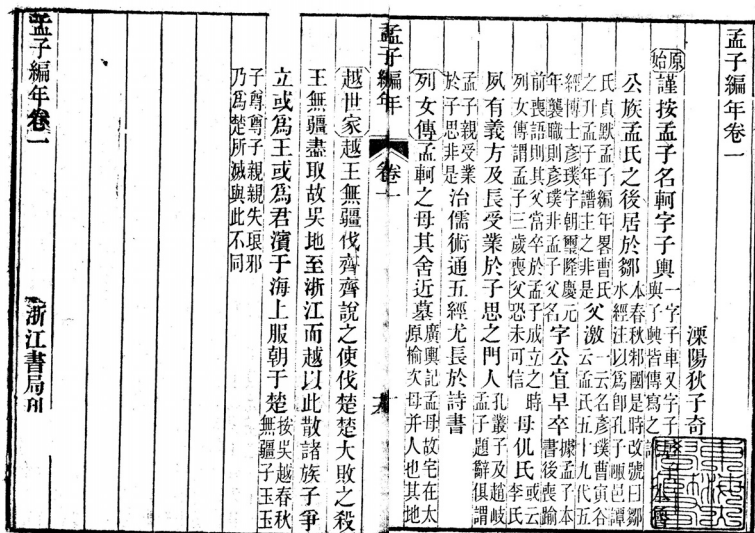 孟子編年卷一
溧陽狄子奇
原始 謹按孟子名軻字子輿 一字子車又字子
皆傳寫之
公族孟氏之後居於鄒 本春秋邾國是時改號曰鄒
水經注以爲卽孔子陬邑譚
氏貞默孟子編年畧曹氏
之升孟子年譜主之非是 父激 一云名彥璞曹寅谷
云孟氏五十九代五
經博士彥璞字朝璽隆慶元
年襲職則彥璞非孟子父名 字公宜早卒 據孟子本
書後喪踰
前喪語則其父當卒於孟子成立之時
列女傳謂孟子三歲喪父恐未可信 母仉氏 或云
李氏
夙有義方及長受業於子思之門人 孔叢子及趙岐
孟子題辭俱謂
孟子親受業
於子思非是 治儒術通五經尤長於詩書
列女傳 孟軻之母其舍近墓 廣輿記孟母故宅在太
原榆次母并人也其地
孟子編年 卷一
越世家 越王無彊伐齊齊說之使伐楚楚大敗之殺
王無彊盡取故吳地至浙江而越以此散諸族子爭
立或爲王或爲君濱于海上服朝于楚 按吳越春秋
無彊子玉玉
子尊尊子親親失琅邪
乃爲楚所滅與此不同
孟子編年卷一 浙江書局刊